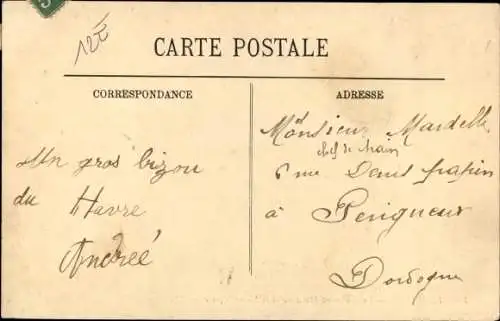 5
12E
CARTE POSTALE
CORRESPONDANCE
ADRESSE
Un gros bizou
du Havre
Andrée
Monsieur Mardelle
chef de train
6 rue Denis Papin
à Perigueux
Dordogne